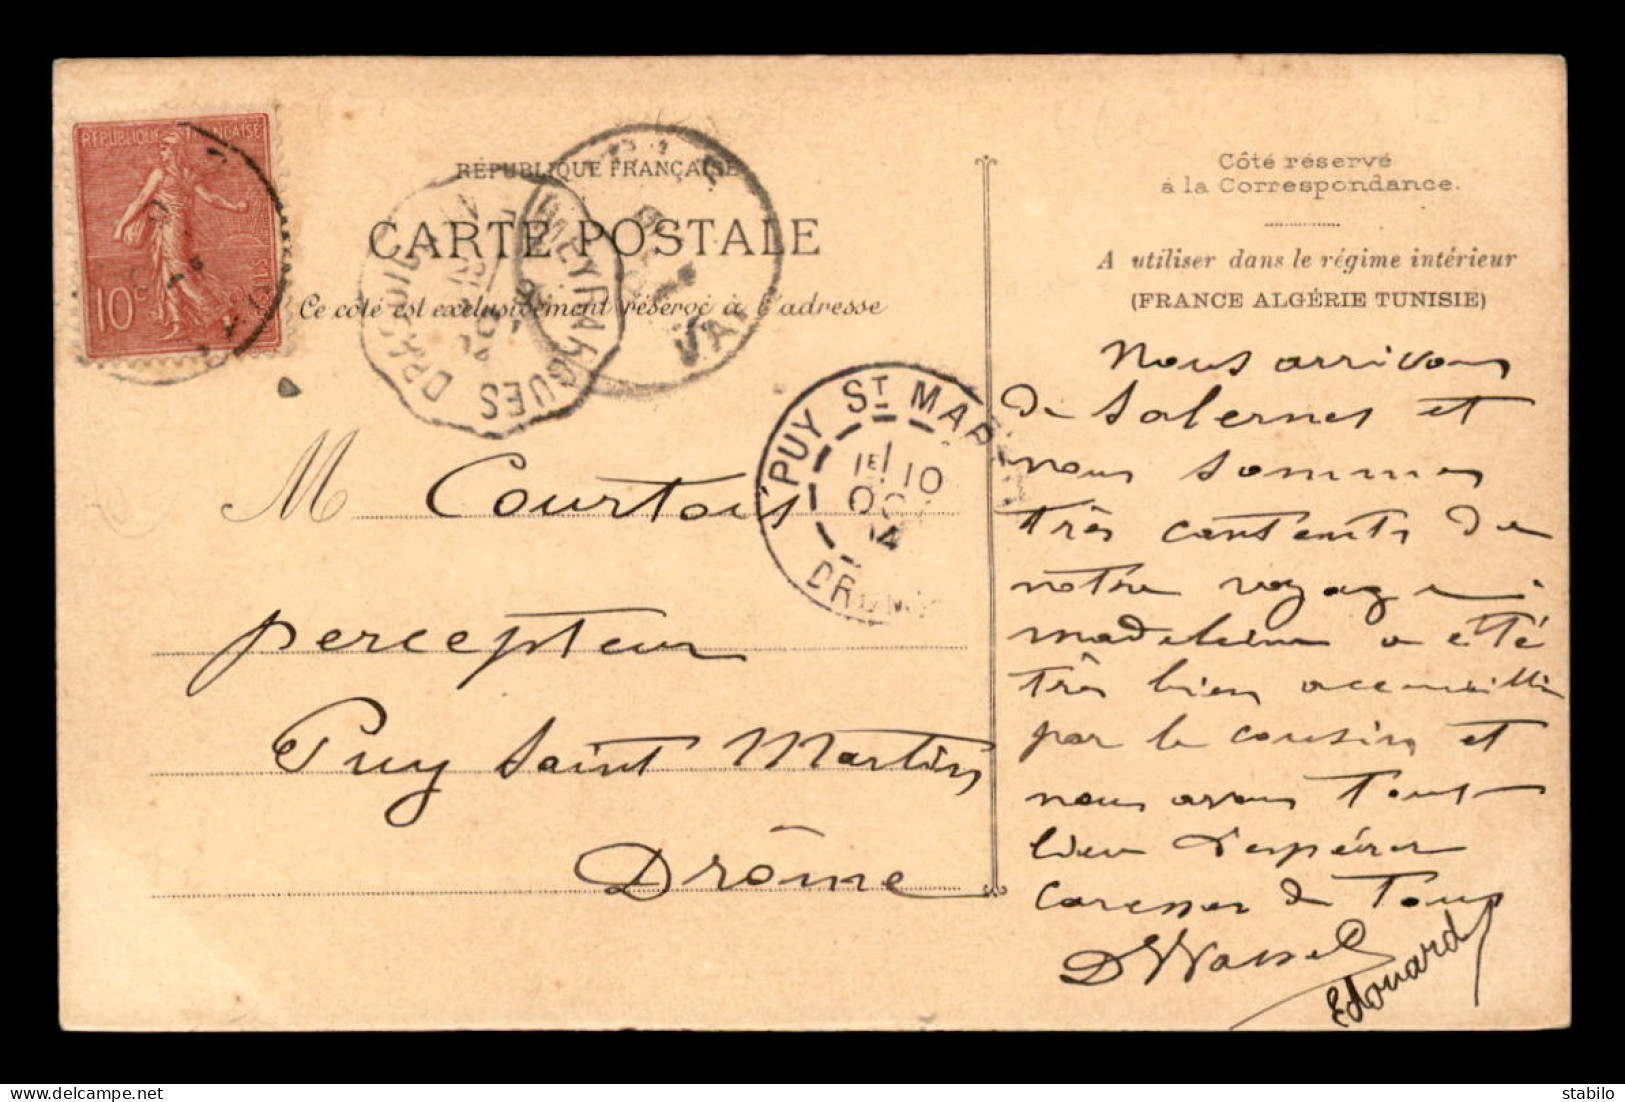 REPUBLIQUE FRANÇAISE
10c
RÉPUBLIQUE FRANÇAISE
CARTE POSTALE
Ce côté est exclusivement réservé à l'adresse
DRAGUIGNAN
MEYRARGUES
VAR
PUY ST MARTIN
1E/10
OCT
DROME
M Courtois
percepteur
Puy Saint Martin
Drôme
Côté réservé
à la Correspondance.
A utiliser dans le régime intérieur
(FRANCE ALGÉRIE TUNISIE)
Nous arrivons
de Salernes et
nous sommes
très contents de
notre voyage.
madeleine a été
très bien accueillie
par le cousin et
nous avons tout
lieu d'espérer
Caresses de Tous
Edouard
delcampe.net
stabilo